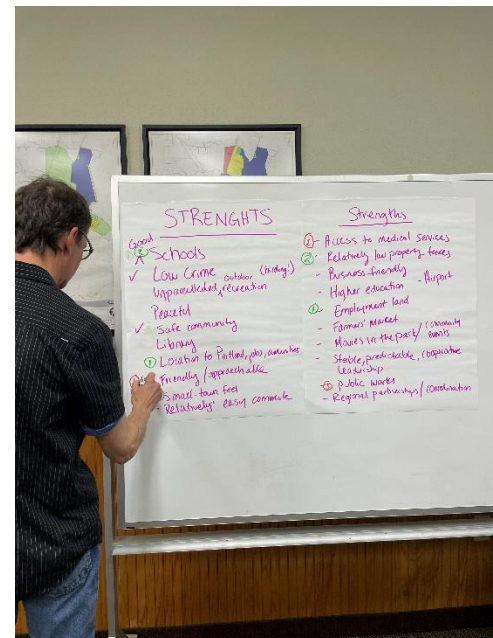 STRENGHTS
Good
Schools
Low Crime
outdoor (birding!)
Unparelleled, recreation
Peaceful
Safe community
Library
① Location to Portland, jobs, amenities
Friendly/approachable
Small-town feel
- Relatively easy commute
Strengths
- Access to medical services
② - Relatively low property taxes
- Business-friendly
- Higher education - Airport
① - Employment land
- Farmers' Market
- Movies in the park/community events
- Stable, predictable, cooperative
leadership
- Public works
- Regional partnerships/coordination